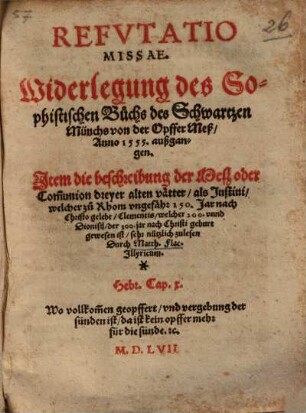 57
26
REFVTATIO
MISSAE.
Widerlegung des So-
phistischen Bůchs des Schwartzen
Münchs von der Opffer Meß/
Anno 1555. außgan-
gen.
Item die beschreibung der Meß oder
Com̃union dreyer alten våtter/ als Justini/
welcher zů Rhom vngefåhr 150. Jar nach
Christo gelebt/ Clementis/ welcher 200. vnnd
Dionisii/ der 300. jar nach Christi geburt
gewesen ist/ sehr nützlich zulesen
Durch Matth. Flac.
Illyricum.
*
Hebr. Cap. x.
Wo vollkom̃en geopffert/ vnd vergebung der
sünden ist/ da ist kein opffer mehr
für die sünde. ꝛc.
M. D. LVII.